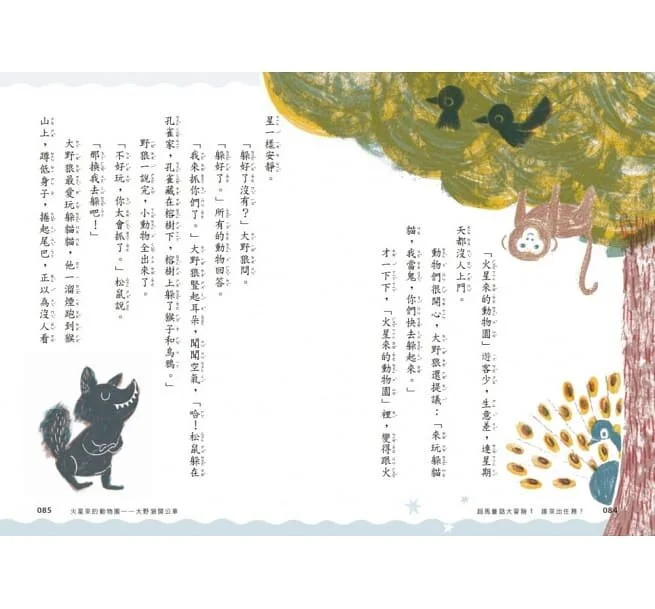 「火星來的動物園」遊客少，生意差，連星期
天都沒人上門。
動物們很開心，大野狼還提議：「來玩躲貓
貓，我當鬼，你們快去躲起來。」
才一下下，「火星來的動物園」裡，變得跟火
084
超馬童話大冒險1 誰來出任務？
星一樣安靜。
「躲好了沒有？」大野狼問。
「躲好了。」所有的動物回答。
「我來抓你們了。」大野狼豎起耳朵，聞聞空氣，「哈！松鼠躲在
孔雀家，孔雀藏在榕樹下，榕樹上躲了猴子和烏鴉。」
野狼一說完，小動物全出來了。
「不好玩，你太會抓了。」松鼠說。
「那換我去躲吧！」
大野狼最愛玩躲貓貓，他一溜煙跑到猴
山上，蹲低身子，捲起尾巴，正以為沒人看
085
火星來的動物園——大野狼開公車